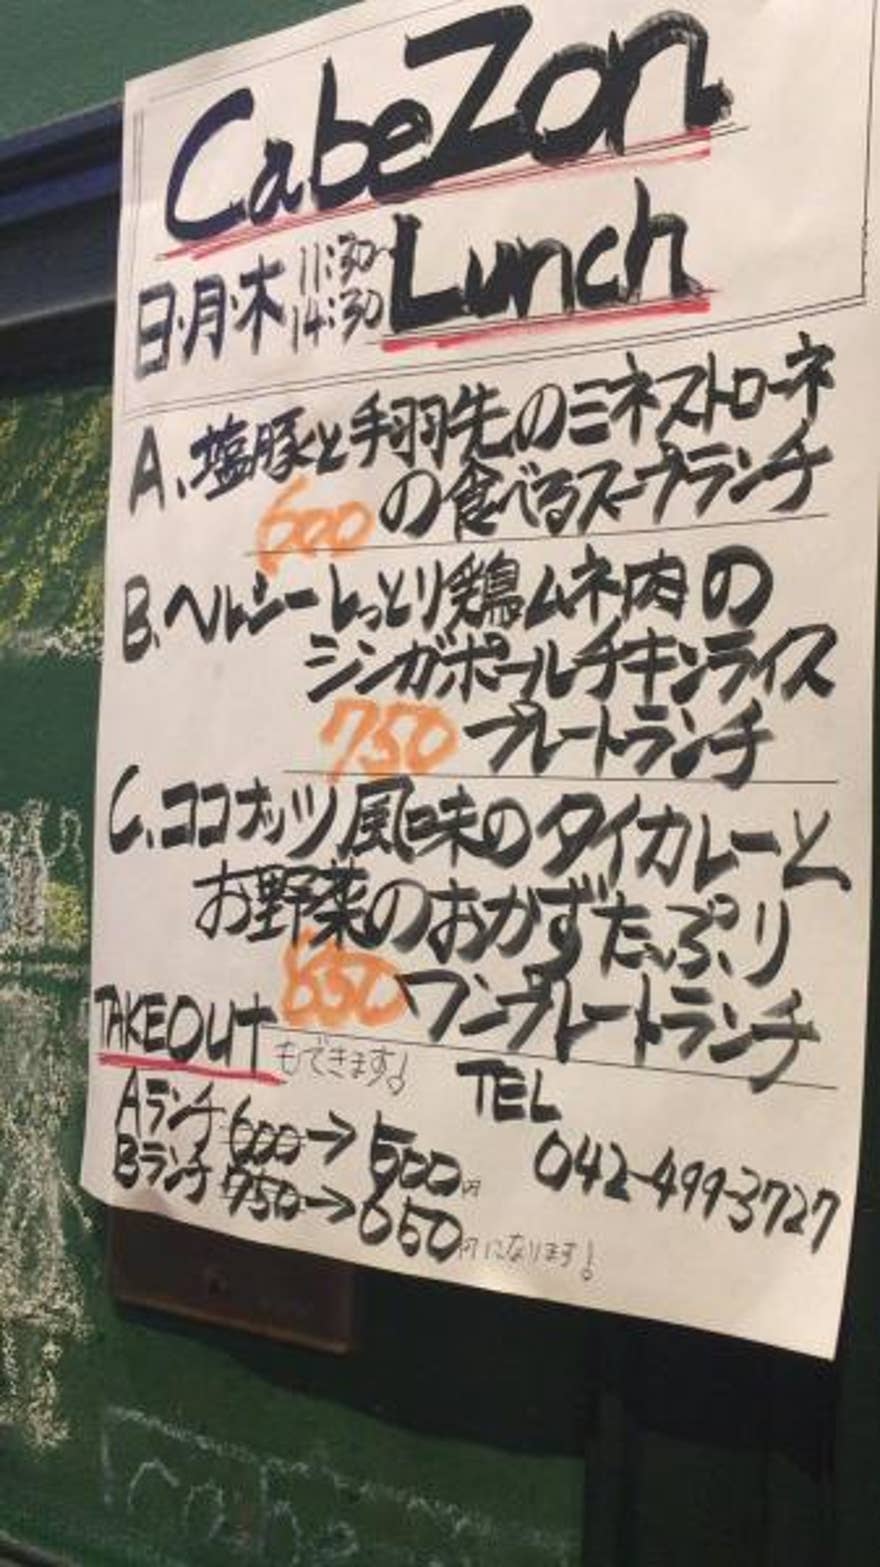 CabeZon
日・月・木 11:30~14:30 Lunch
A、塩豚と手羽先のミネストローネ
の食べるスープランチ
600
B、ヘルシーしっとり鶏ムネ肉の
シンガポールチキンライス
750 プレートランチ
C、ココナッツ風味のタイカレーと
お野菜のおかずたっぷり
ワンプレートランチ
TAKEOUT もできます!
TEL
042-499-3727
Aランチ 600→500円
Bランチ 750→650円になります!